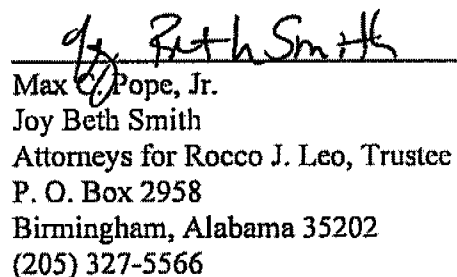 Joy Beth Smith
Max C. Pope, Jr.
Joy Beth Smith
Attorneys for Rocco J. Leo, Trustee
P. O. Box 2958
Birmingham, Alabama 35202
(205) 327-5566